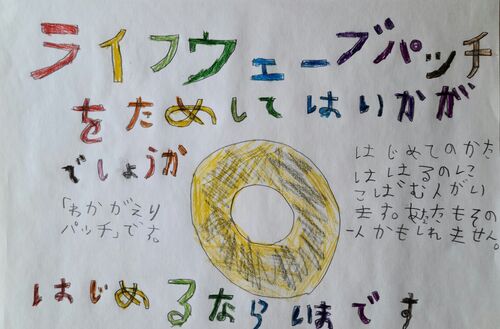 ライフウェーブパッチ
をためしてはいかが
でしょうか
はじめてのかた
ははるのに
こばむ人がい
ます。あなたもその
一人かもしれません。
「わかがえり
パッチ」です。
はじめるならいまです